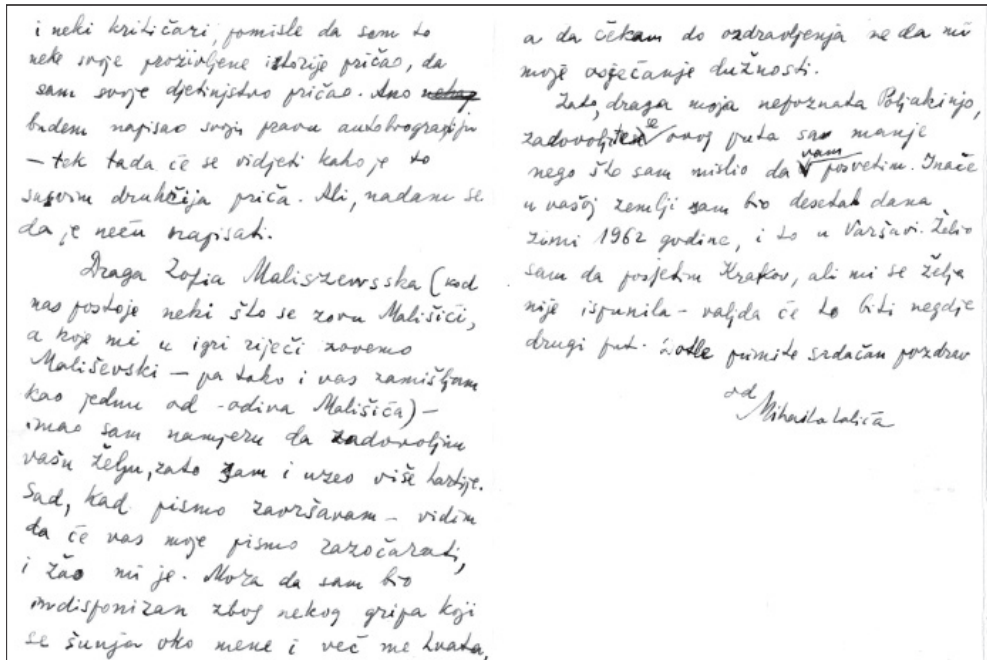 i neki kritičari, pomisle da sam to
neke svoje proživljene istorije pričao, da
sam svoje djetinjstvo pričao. Ako
budem napisao svoju pravu autobiografiju
— tek tada će se vidjeti kako je to
sasvim drukčija priča. Ali, nadam se
da je neću napisati.
Draga Zofia Maliszewsska (kod
nas postoje neki što se zovu Mališići,
a koje mi u igri riječi zovemo
Mališevski — pa tako i vas zamišljam
kao jednu od -odiva Mališića) —
imao sam namjeru da zadovoljim
vašu želju, zato sam i uzeo više hartije.
Sad, kad pismo završavam — vidim
da će vas moje pismo razočarati,
i žao mi je. Možda da sam bio
indisponiran zbog nekog gripa koji
se šunja oko mene i već me hvata,
a da čekam do ozdravljenja ne da mi
moje osjećanje dužnosti.
Zato, draga moja nepoznata Poljakinjo,
zadovoljite se ovog puta sa manje
nego što sam mislio da vam posvetim. Inače
u vašoj zemlji sam bio desetak dana
zimi 1962 godine, i to u Varšavi. Želio
sam da posjetim Krakov, ali mi se želja
nije ispunila — valjda će to biti negdje
drugi put. Dotle primite srdačan pozdrav
od
Mihaila Lalića